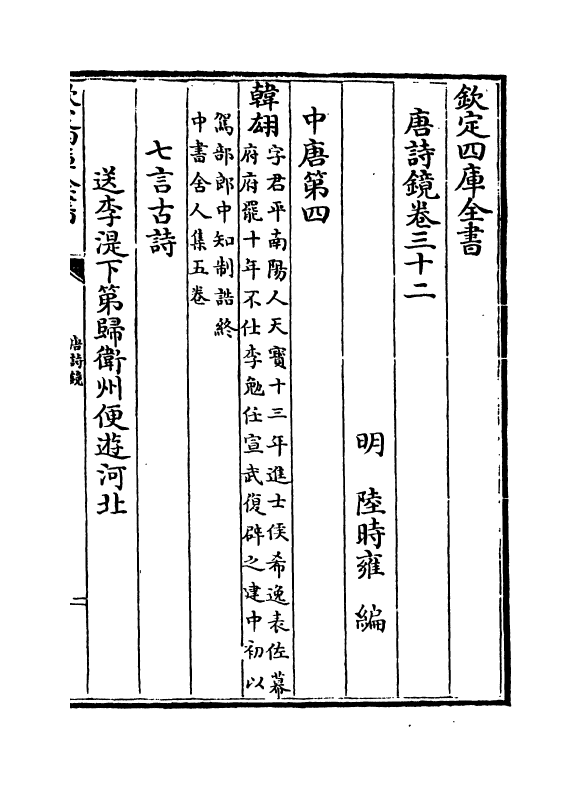 欽定四庫全書
唐詩鏡卷三十二
明 陸時雍 編
中唐第四
韓翃字君平南陽人天寳十三年進士侯希逸表佐幕
府府罷十年不仕李勉任宣武復辟之建中初以
駕部郎中知制誥終
中書舍人集五卷
七言古詩
送李湜下第歸衛州便遊河北
唐詩鏡